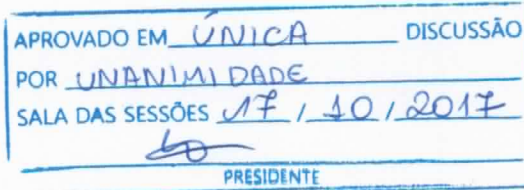 APROVADO EM ÚNICA DISCUSSÃO
POR UNANIMIDADE
SALA DAS SESSÕES 17 / 10 / 2017
PRESIDENTE